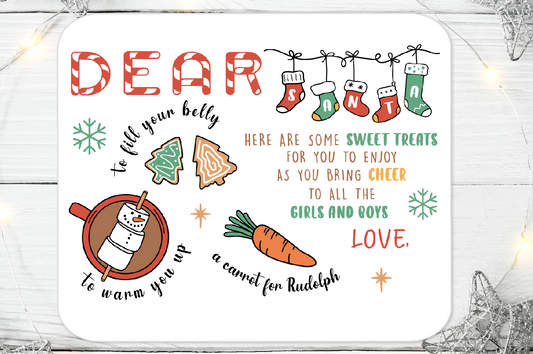 DEAR
SANTA
to fill your belly
HERE ARE SOME SWEET TREATS
FOR YOU TO ENJOY
AS YOU BRING CHEER
TO ALL THE
GIRLS AND BOYS
LOVE,
to warm you up
a carrot for Rudolph